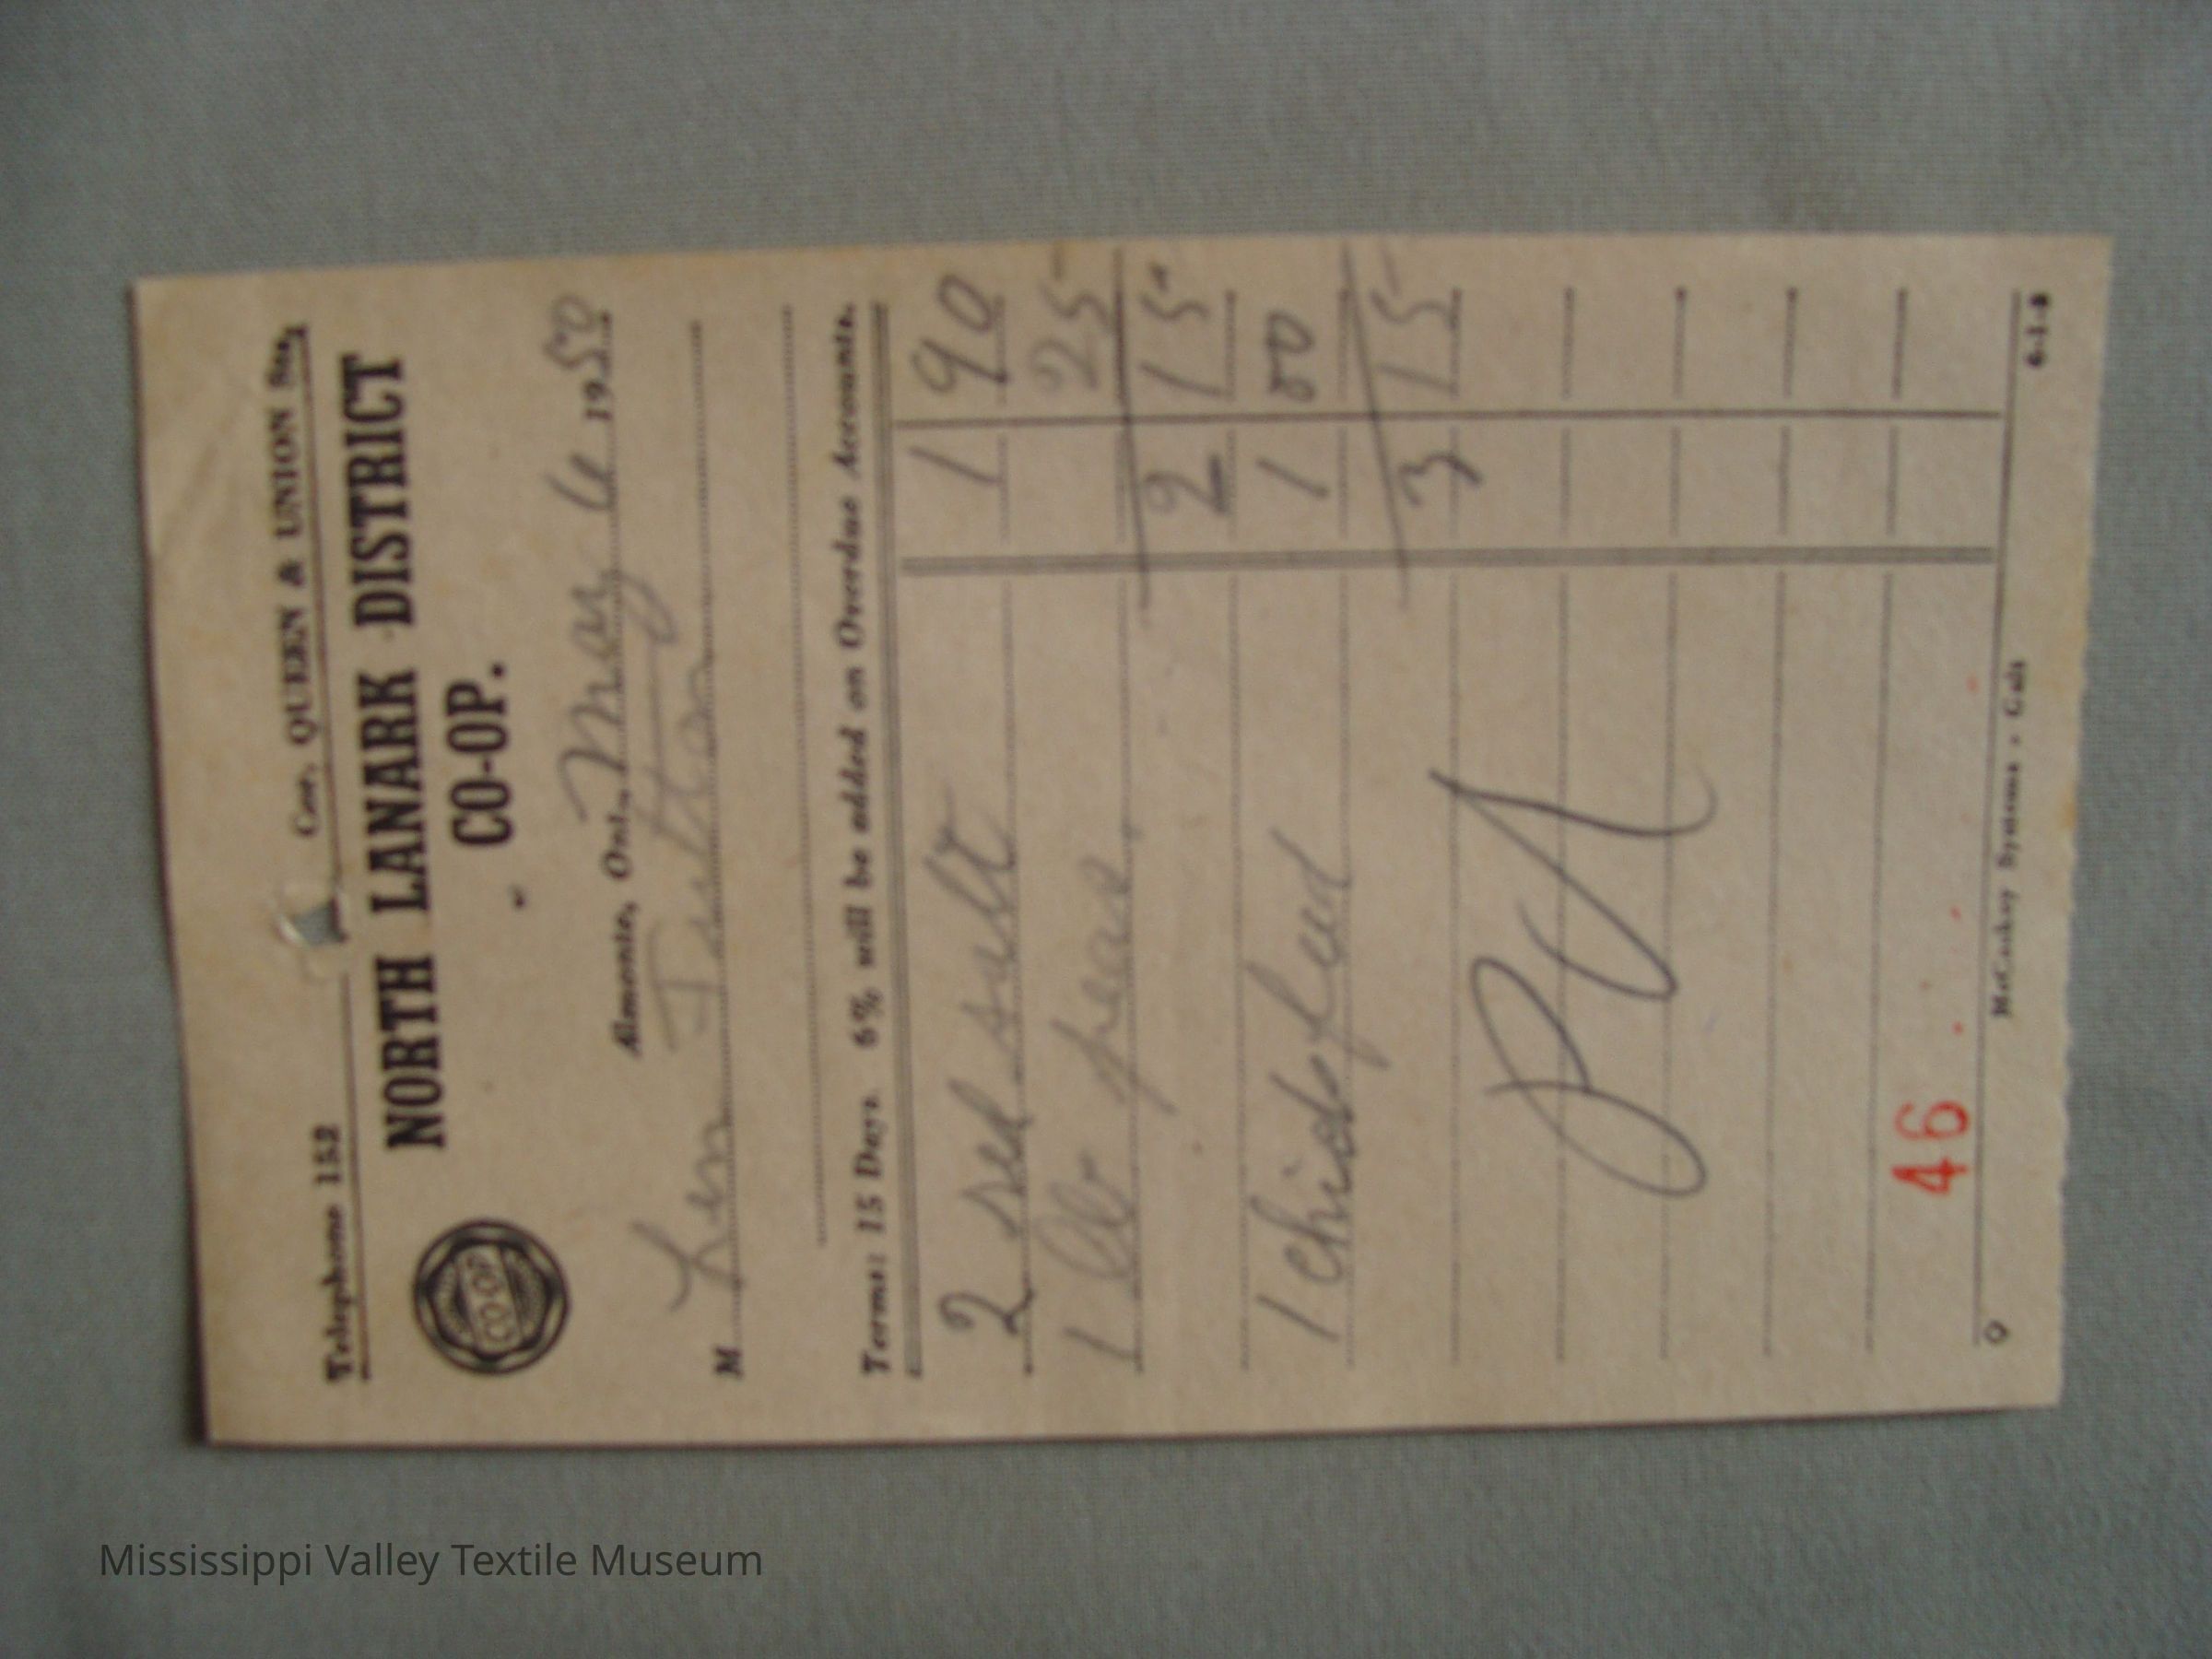 Telephone 152 Cor. QUEEN & UNION Sts.
NORTH LANARK DISTRICT
CO-OP.
CO-OP
Almonte, Ont., May 6 1950
M Len
Terms: 15 Days. 6% will be added on Overdue Accounts.
2 red salt 1 90
1 lb peas. 25
2 15
1 chick feed 1 00
3 15
46
McCaskey Systems - Galt 6-1-8
Mississippi Valley Textile Museum